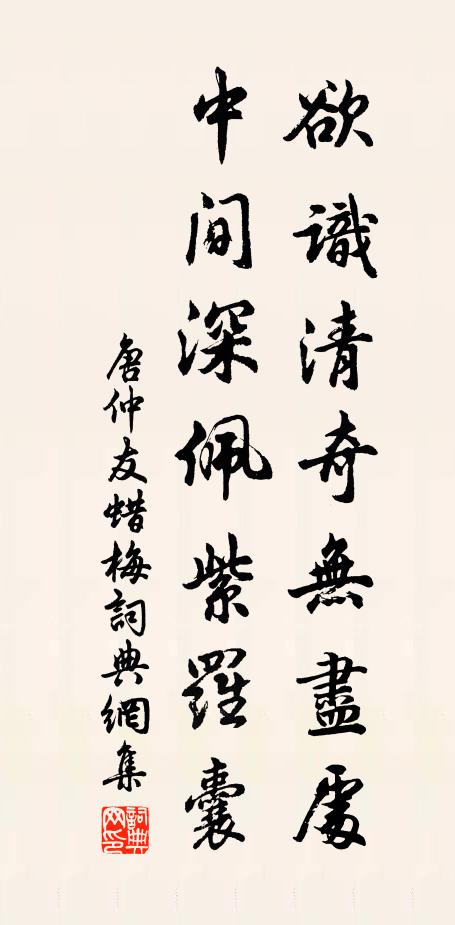 欲識清奇無盡處
中間深佩紫羅囊
唐仲友蜡梅詞典網集
詞典網印